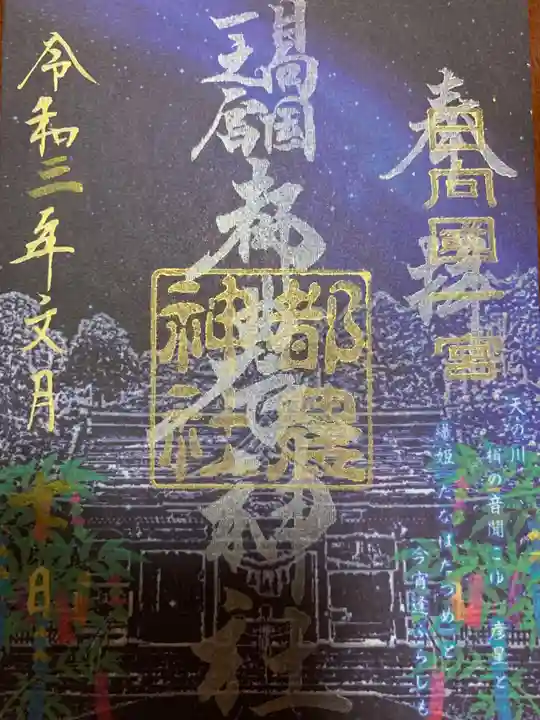 奉拝
日向國一宮
日向国
一之宮
都農神社
都農
神社
天の川
楫の音聞こゆ 彦星と
織姫 たなばたつめと
今宵逢ふらしも
令和三年文月
七日